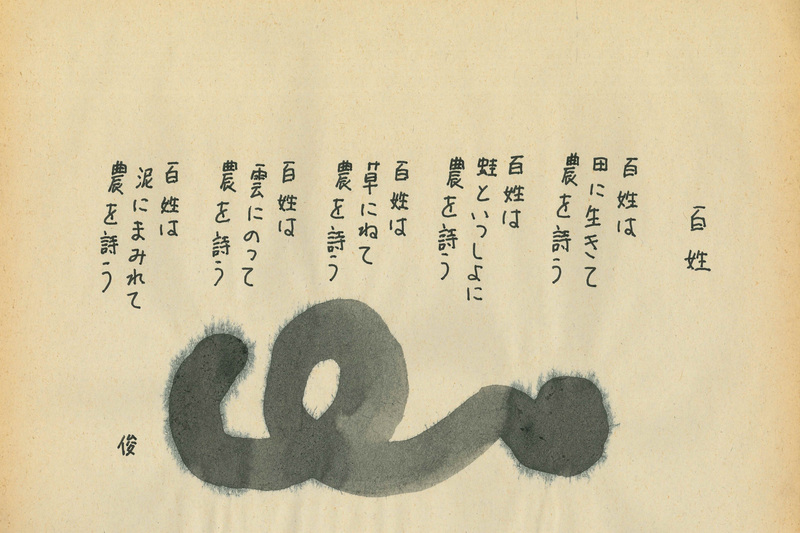 百姓
百姓は
田に生きて
農を詩う
百姓は
蛙といっしよに
農を詩う
百姓は
草にねて
農を詩う
百姓は
雲にのって
農を詩う
百姓は
泥にまみれて
農を詩う
俊